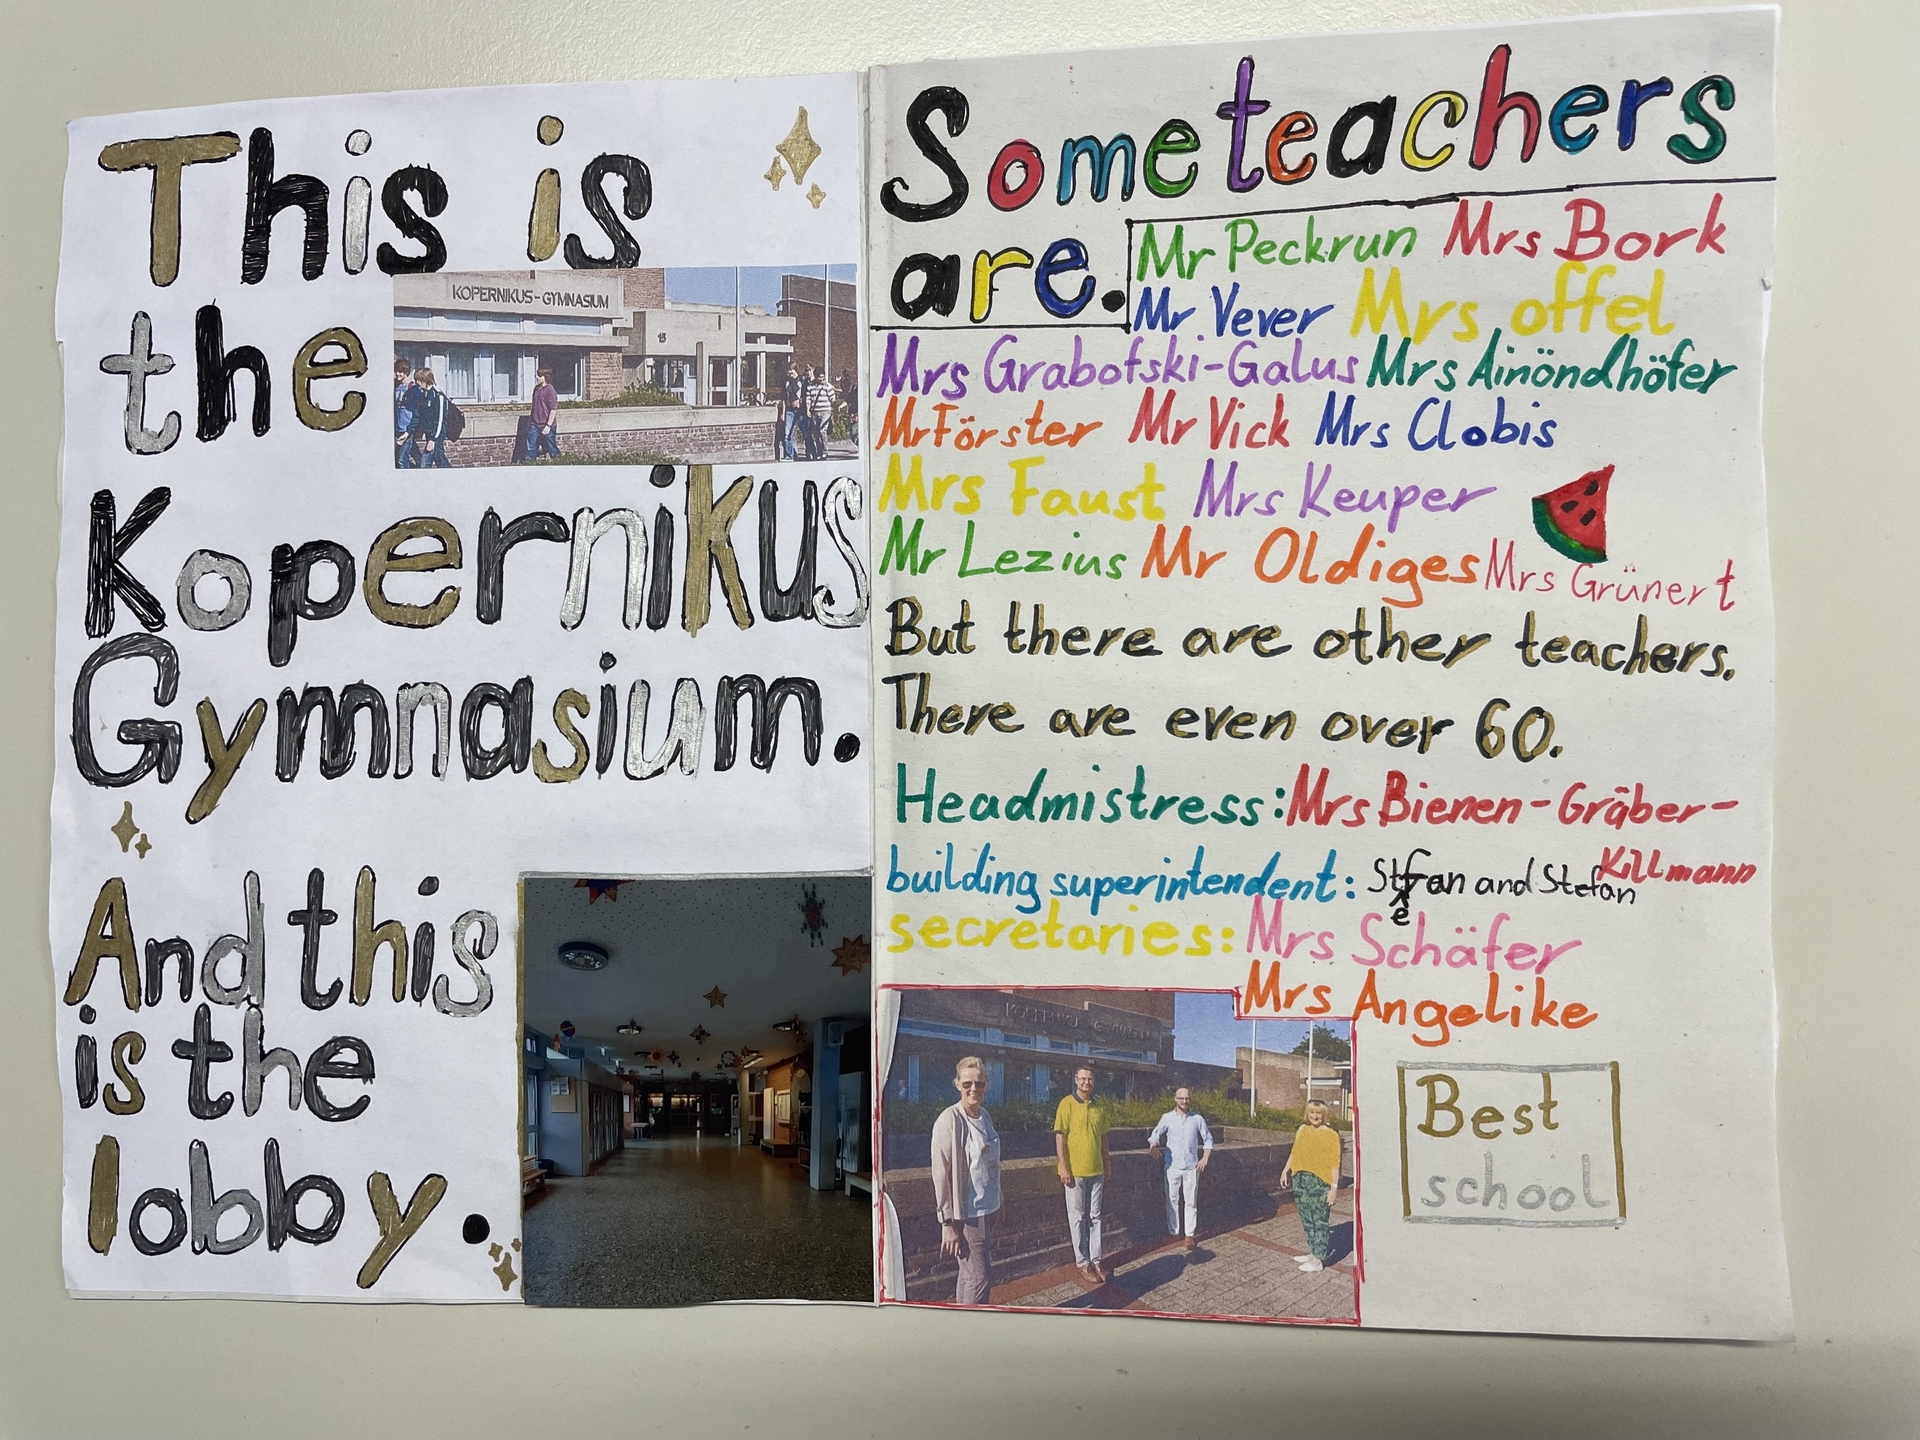 This is
the
KOPERNIKUS-GYMNASIUM
15
Kopernikus
Gymnasium.
And this
is the
lobby.
Some teachers
are.
Mr Peckrun Mrs Bork
Mr Vever Mrs offel
Mrs Grabofski-Galus Mrs Ainöndhöfer
Mr Förster Mr Vick Mrs Clobis
Mrs Faust Mrs Keuper
Mr Lezius Mr Oldiges Mrs Grünert
But there are other teachers.
There are even over 60.
Headmistress: Mrs Bienen-Gräber-
Killmann
building superintendent: Stefan and Stefan
secretaries: Mrs Schäfer
Mrs Angelike
KOPERNIKUS-GYMNASIUM
Best
school